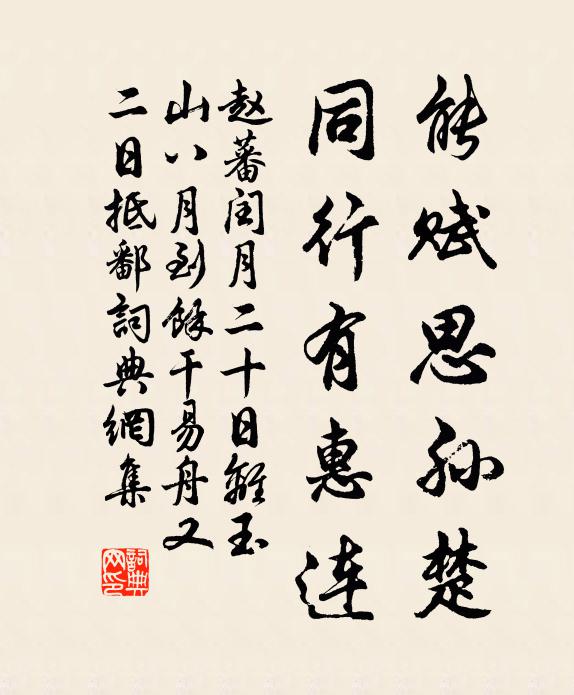 能赋思孙楚
同行有惠连
赵蕃闰月二十日離玉
山八月到餘干易舟又
二日抵鄱詞典網集
詞典网印